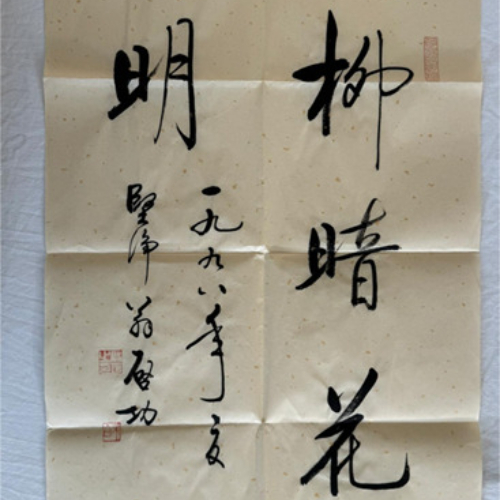 柳暗花
明
一九九八年夏
坚净翁启功